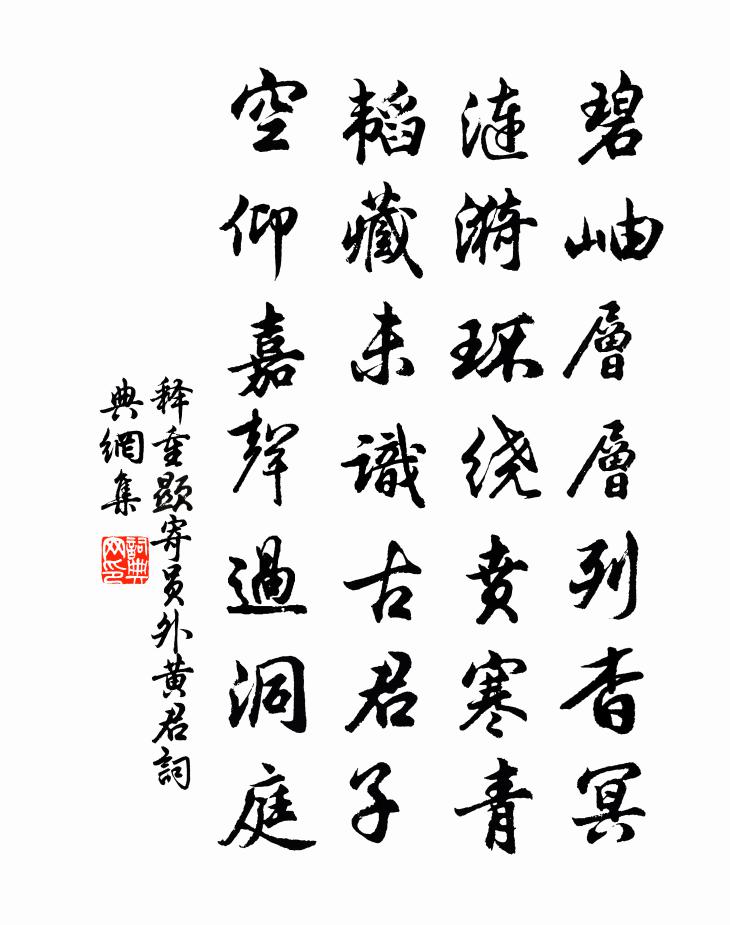 碧岫層層列杳冥
漣漪環绕賁寒青
韜藏未識古君子
空仰嘉聲過洞庭
释重顯寄员外黄君詞
典網集
詞典網印